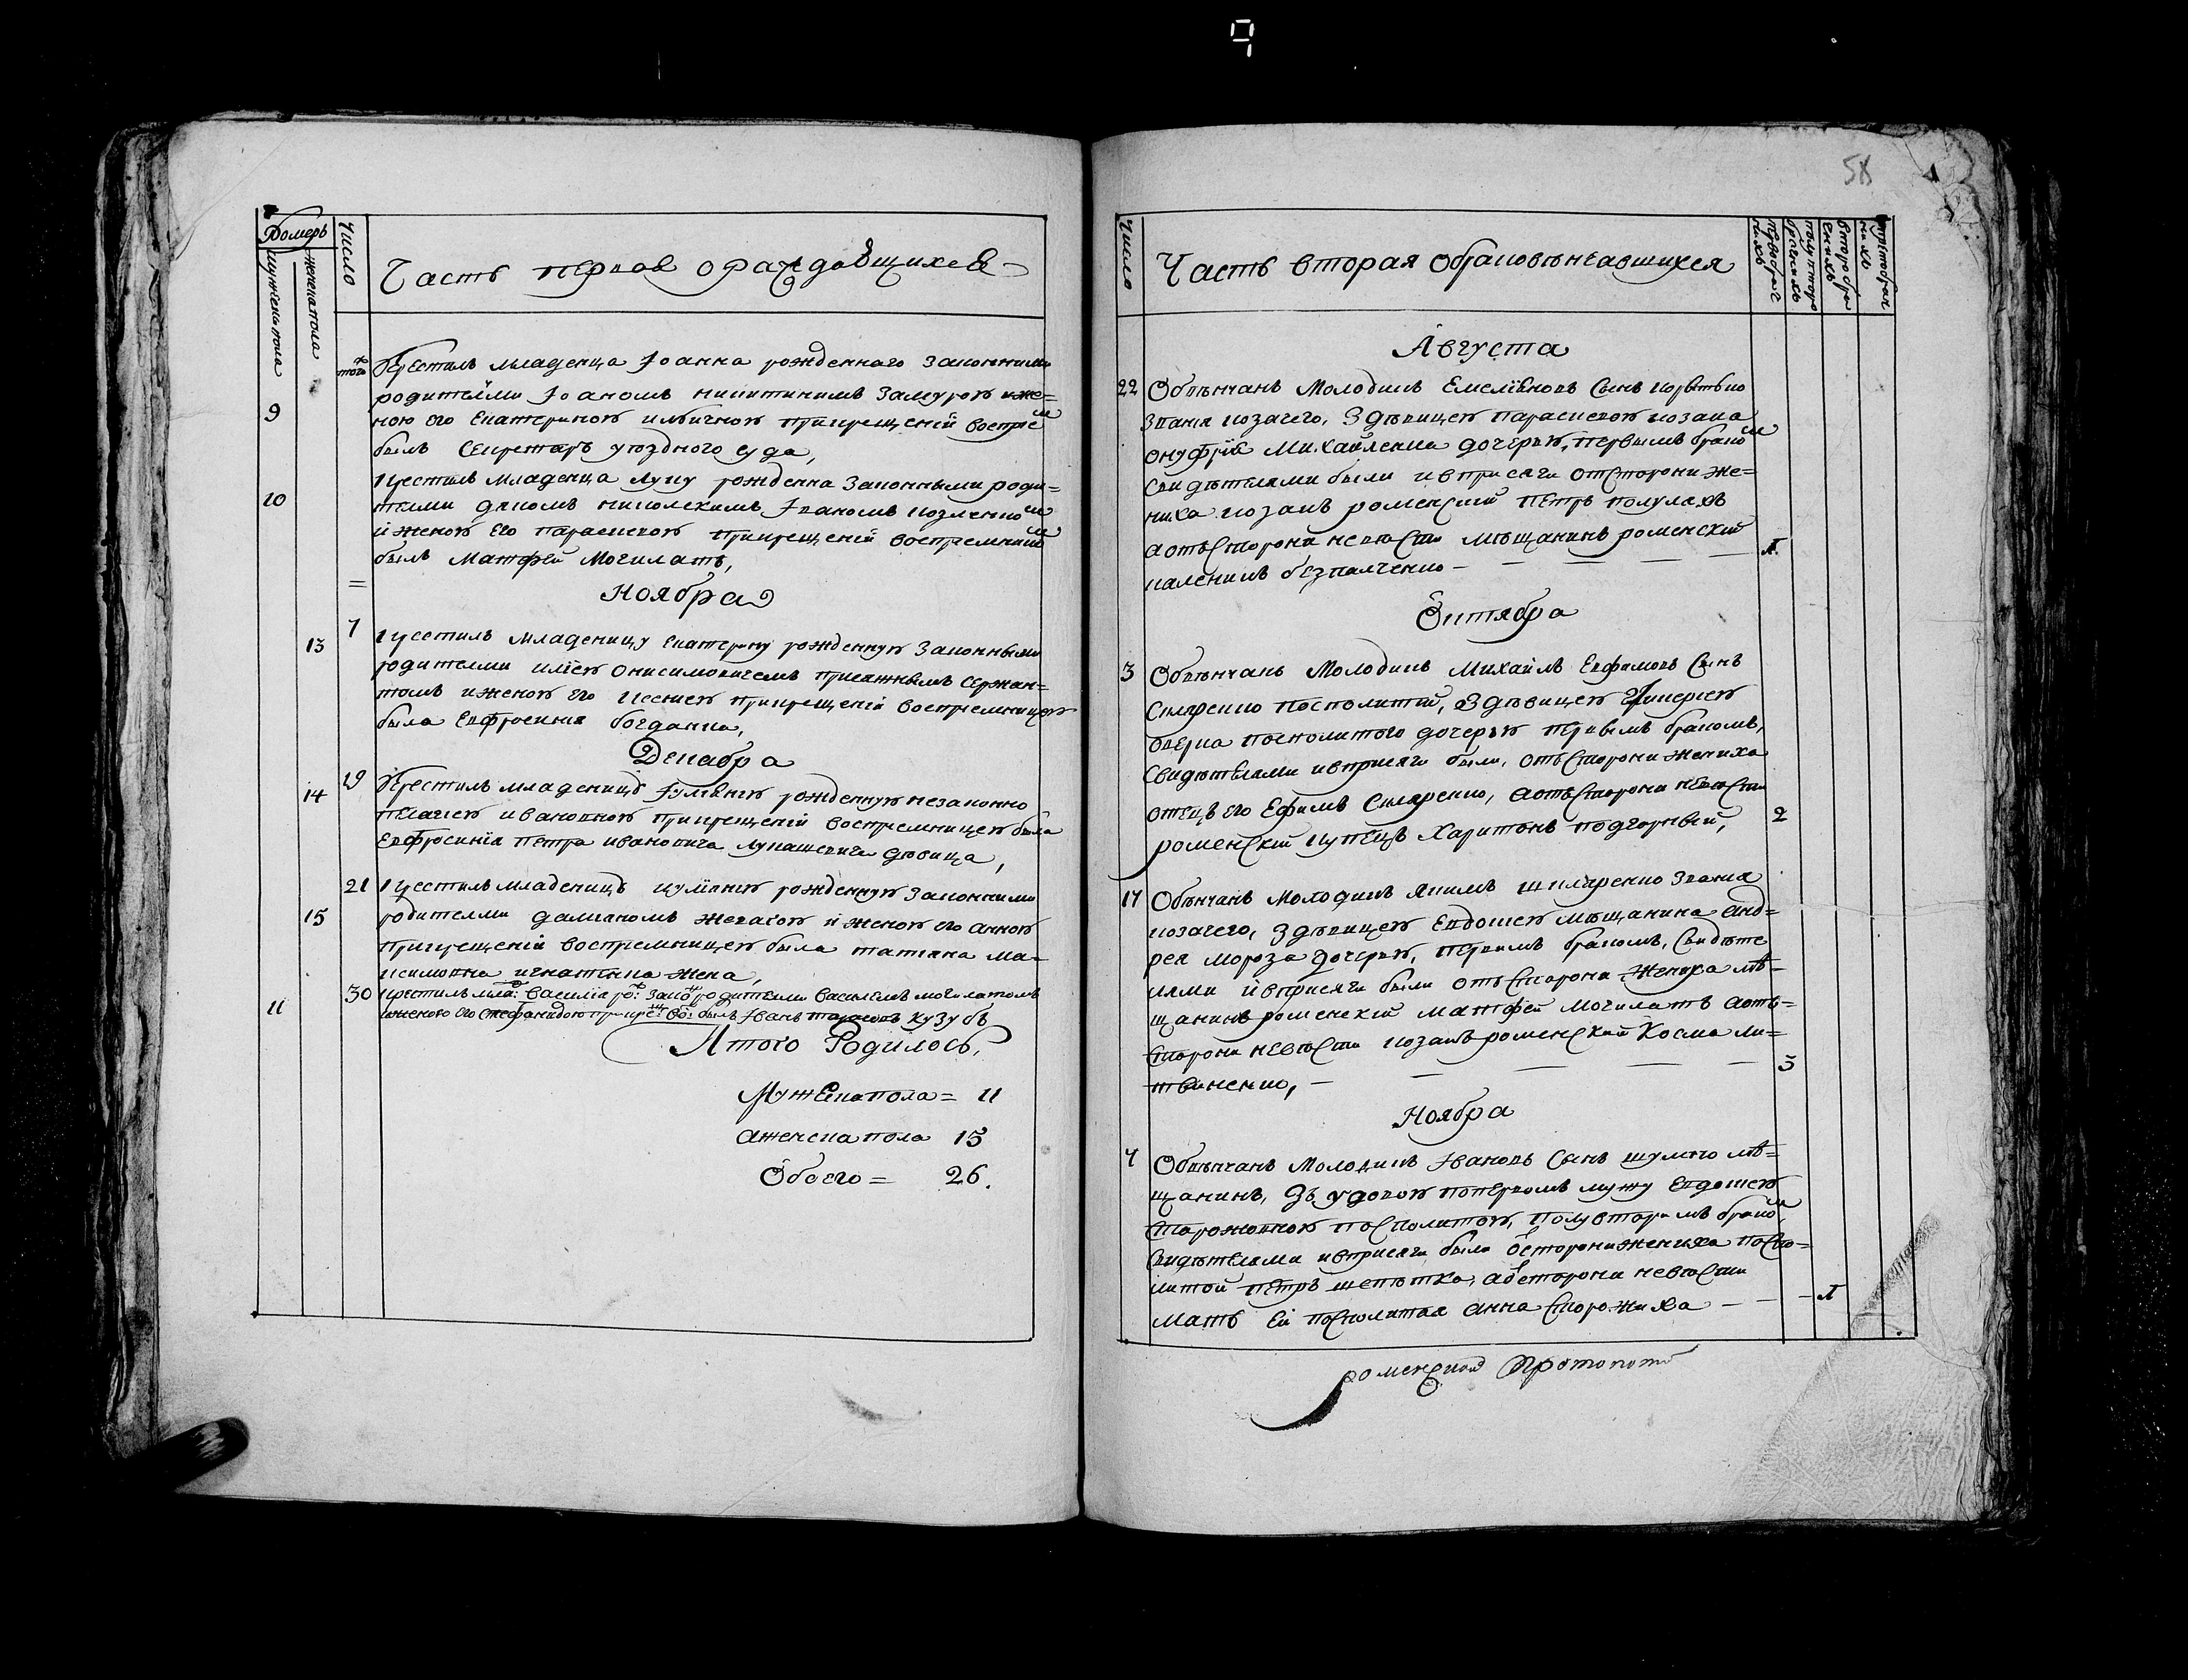 9
58
Номеръ
мужеска пола
женска пола
Число
Часть первая о раждающихся
того ж
Крестилъ младенца Іоанна рожденнаго законними
родителми Іоаномъ никитинимъ Замурою и же=
9
ною его Екатериною
былъ Секретарь уездного суда,
10
Крестилъ младенца Луку рожденна Законными роди=
телми дякомъ николскимъ Іваномъ козленком
и женою его параскевою прикрещеніи воспріемником
былъ Матфей Могилатъ,
Ноября
13
7
Крестилъ младеницу Екатерину рожденную Законными
родителми иліею Онисимовичемъ присяжнымъ сержан=
томъ и женою его Ксениею прикрещеніи воспріемницею
была Евфросиния богданка,
Декабря
14
19
Крестилъ младеницу Іулианію рожденную незаконно
пелагіею ивановною прикрещеніи воспріемницею была
Евфросиніа Петра ивановича лукашевича дѣвица,
15
21
Крестилъ младеницу иулианію рожденную Законними
родителми даміаномъ и женою его анною
прикрещеніи воспріемницею была татіана ма=
ксимовна игнатенка жена,
11
30
Крестилъ мла: василіа ро: зако родителми василемъ могилатомъ
и женою его Стефанидою прикре: во: былъ Іванъ кузубъ
Итого Родилось,
Мужеска пола = 11
а женска пола 15
Обоего = 26.
Число
Часть вторая о браковѣнчавшихся
первобрач
ныхъ
полувторо
брачныхъ
второбра
чныхъ
третобрач
ныхъ
Августа
22
Обвѣнчанъ Молодикъ Емеліяновъ Сынъ
Званія козачего, З дѣвицею параскевою козака
Онуфрія Михайленка дочерью, первымъ браком
свидѣтелами были и в присяги от стороны же=
ниха козакъ роменский Петръ полулахъ
а отъ стороны невѣсти мѣщанинъ роменскій
безпалченко — 1
Октября
3
Обвѣнчанъ Молодикъ Михайлъ Евфимовъ Сынъ
Скляренко Посполитий, З дѣвицею Гликеріею
посполитого дочерью первымъ бракомъ,
свидѣтелами и в присяги были, отъ стороны жениха
отецъ его Ефимъ Скляренко, а отъ стороны невѣсти
роменскій купецъ Харитонъ подгорный, 2
17
Обвѣнчанъ Молодикъ якимъ шкляренко Званиа
козачего, З дѣвицею Евдокіею мѣщанина анд=
рея мороза дочерью, первимъ бракомъ, Свидѣте
лями и в присяги были отъ стороны Жениха мѣ=
щанинъ роменскій матфей Могилатъ а отъ=
стороны невѣсти козакъ роменский Косма ли=
твиненко, — 3
Ноября
4
Обвѣнчанъ Молодикъ Івановъ Сынъ шулико мѣ=
щанинъ, Зъ удовою по первомъ мужу Евдокіею
сторожовною посполитою, полувторимъ браком,
свидѣтелами и в присяги были от стороны жениха поспо=
литой Петръ шепѣтка, а от стороны невѣсти
мать Еи посполитая анна сторожиха — 1
роменской Протопопъ